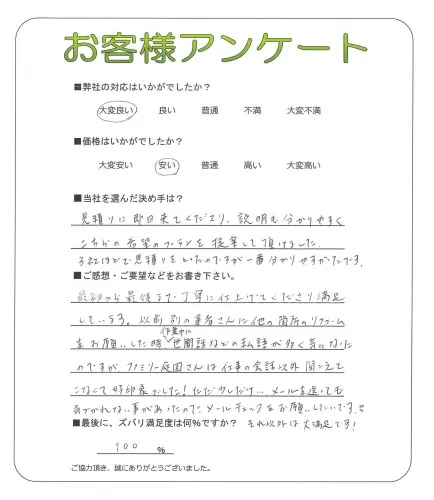 お客様アンケート
■弊社の対応はいかがでしたか?
大変良い 良い 普通 不満 大変不満
■価格はいかがでしたか?
大変安い 安い 普通 高い 大変高い
■当社を選んだ決め手は?
見積りに即日来てくださり、説明も分かりやすく
こちらの希望のプランを提案して頂けました。
3社ほどで見積りをといたのですが一番分かりやすかたです。
■ご感想・ご要望などをお書き下さい。
最初から最後まで丁寧に仕上げてくださり満足
しています。以前別の業者さんに他の箇所のリフォーム
をお願いした時、作業中に世間話などの私語が多く気になった
のですが、ファミリー庭園さんは仕事の会話以外聞こえて
こなくて好印象でした!ただ少しだけ…、メールを送っても
気づかれない事があったので、メールチェックをお願いしたいです。
■最後に、ズバリ満足度は何%ですか? それ以外は大満足です!
100 %
ご協力頂き、誠にありがとうございました。